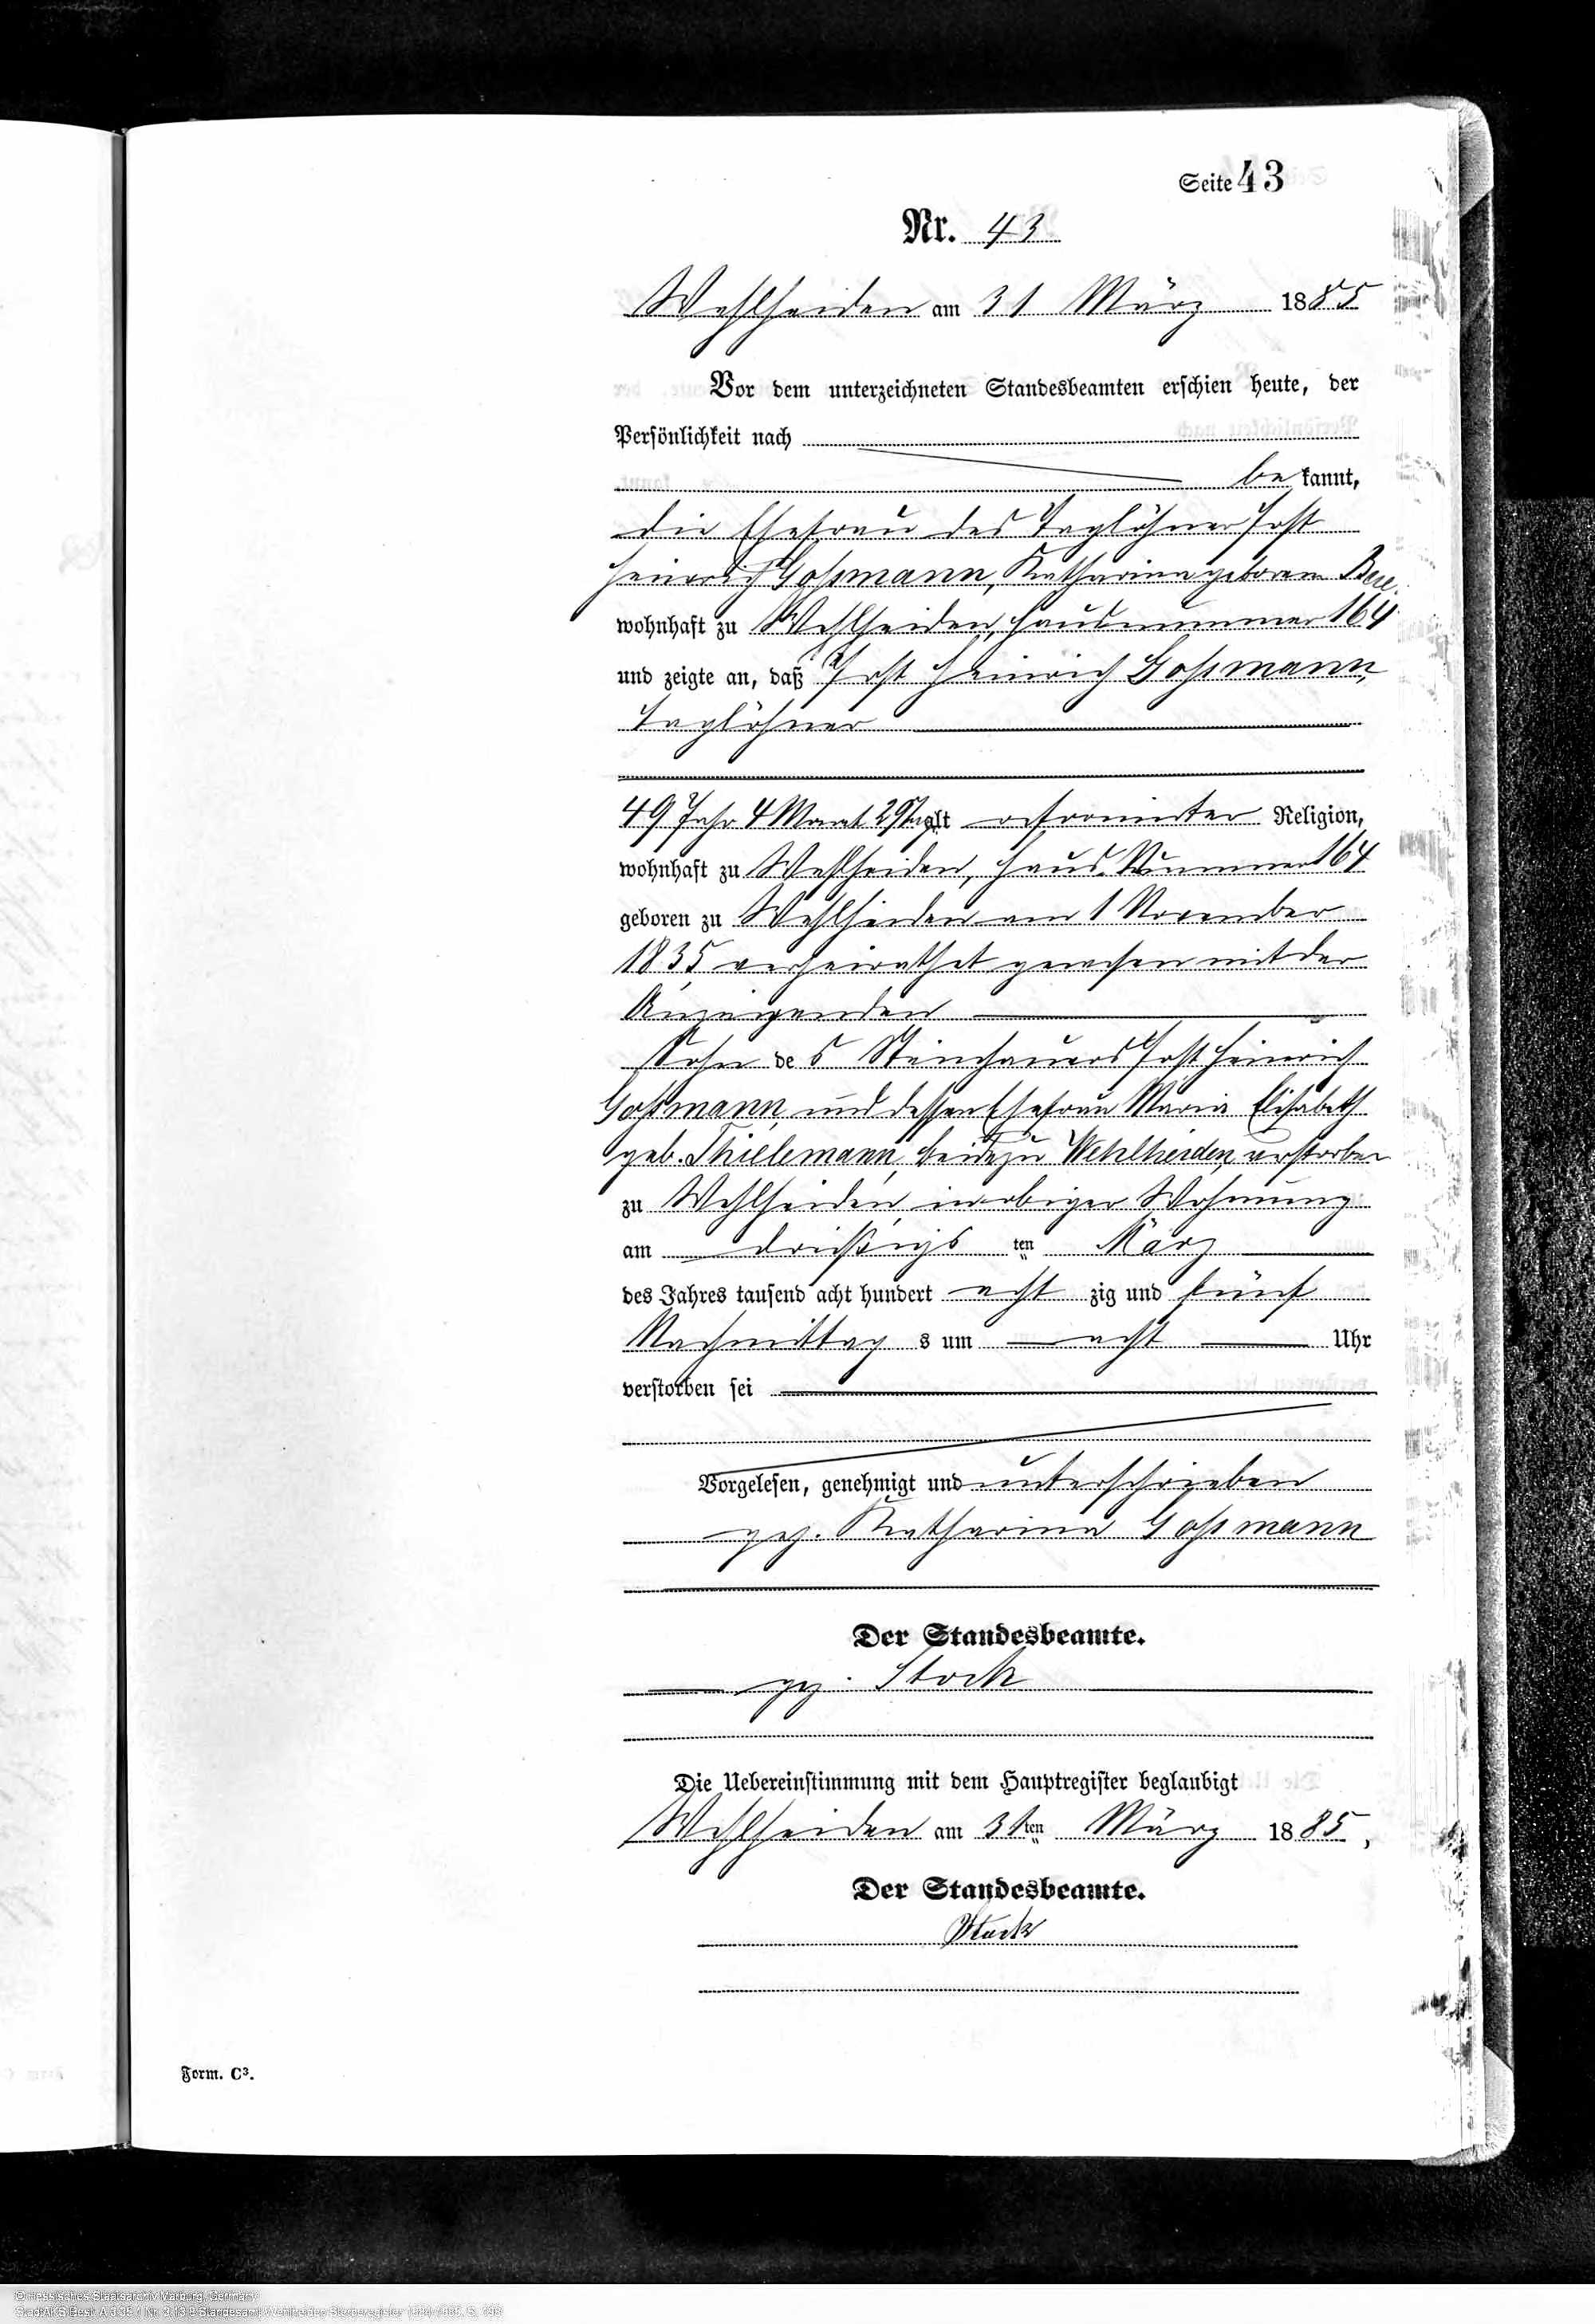 Seite 43
Nr. 43
Wehlheiden am 31 März 1885
Vor dem unterzeichneten Standesbeamten erschien heute, der
Persönlichkeit nach
be kannt,
die Ehefrau des Taglöhner Jost
Heinrich Goßmann, Katharina geborene
wohnhaft zu Wehlheiden, Hausnummer 164
und zeigte an, daß Jost Heinrich Goßmann,
Taglöhner
49 Jahr 4 Monat 29 Tag alt reformirter Religion,
wohnhaft zu Wehlheiden, Haus Nummer 164
geboren zu Wehlheiden am 1 November
1835, verheirathet gewesen mit der
Anzeigenden
Sohn des Steinhauers Jost Heinrich
Goßmann, und dessen Ehefrau Maria Elisabeth
geb. Thielemann, beide zu Wehlheiden, verstorben
zu Wehlheiden, in obiger Wohnung
am dreißigs ten März
des Jahres tausend acht hundert acht zig und fünf
Nachmittag s um acht Uhr
verstorben sei
Vorgelesen, genehmigt und unterschrieben
gez. Katharina Goßmann
Der Standesbeamte.
gez. Stock
Die Uebereinstimmung mit dem Hauptregister beglaubigt
Wehlheiden am 31ten März 1885,
Der Standesbeamte.
Stock
Form. C3.
© Hessisches Staatsarchiv Marburg, Germany